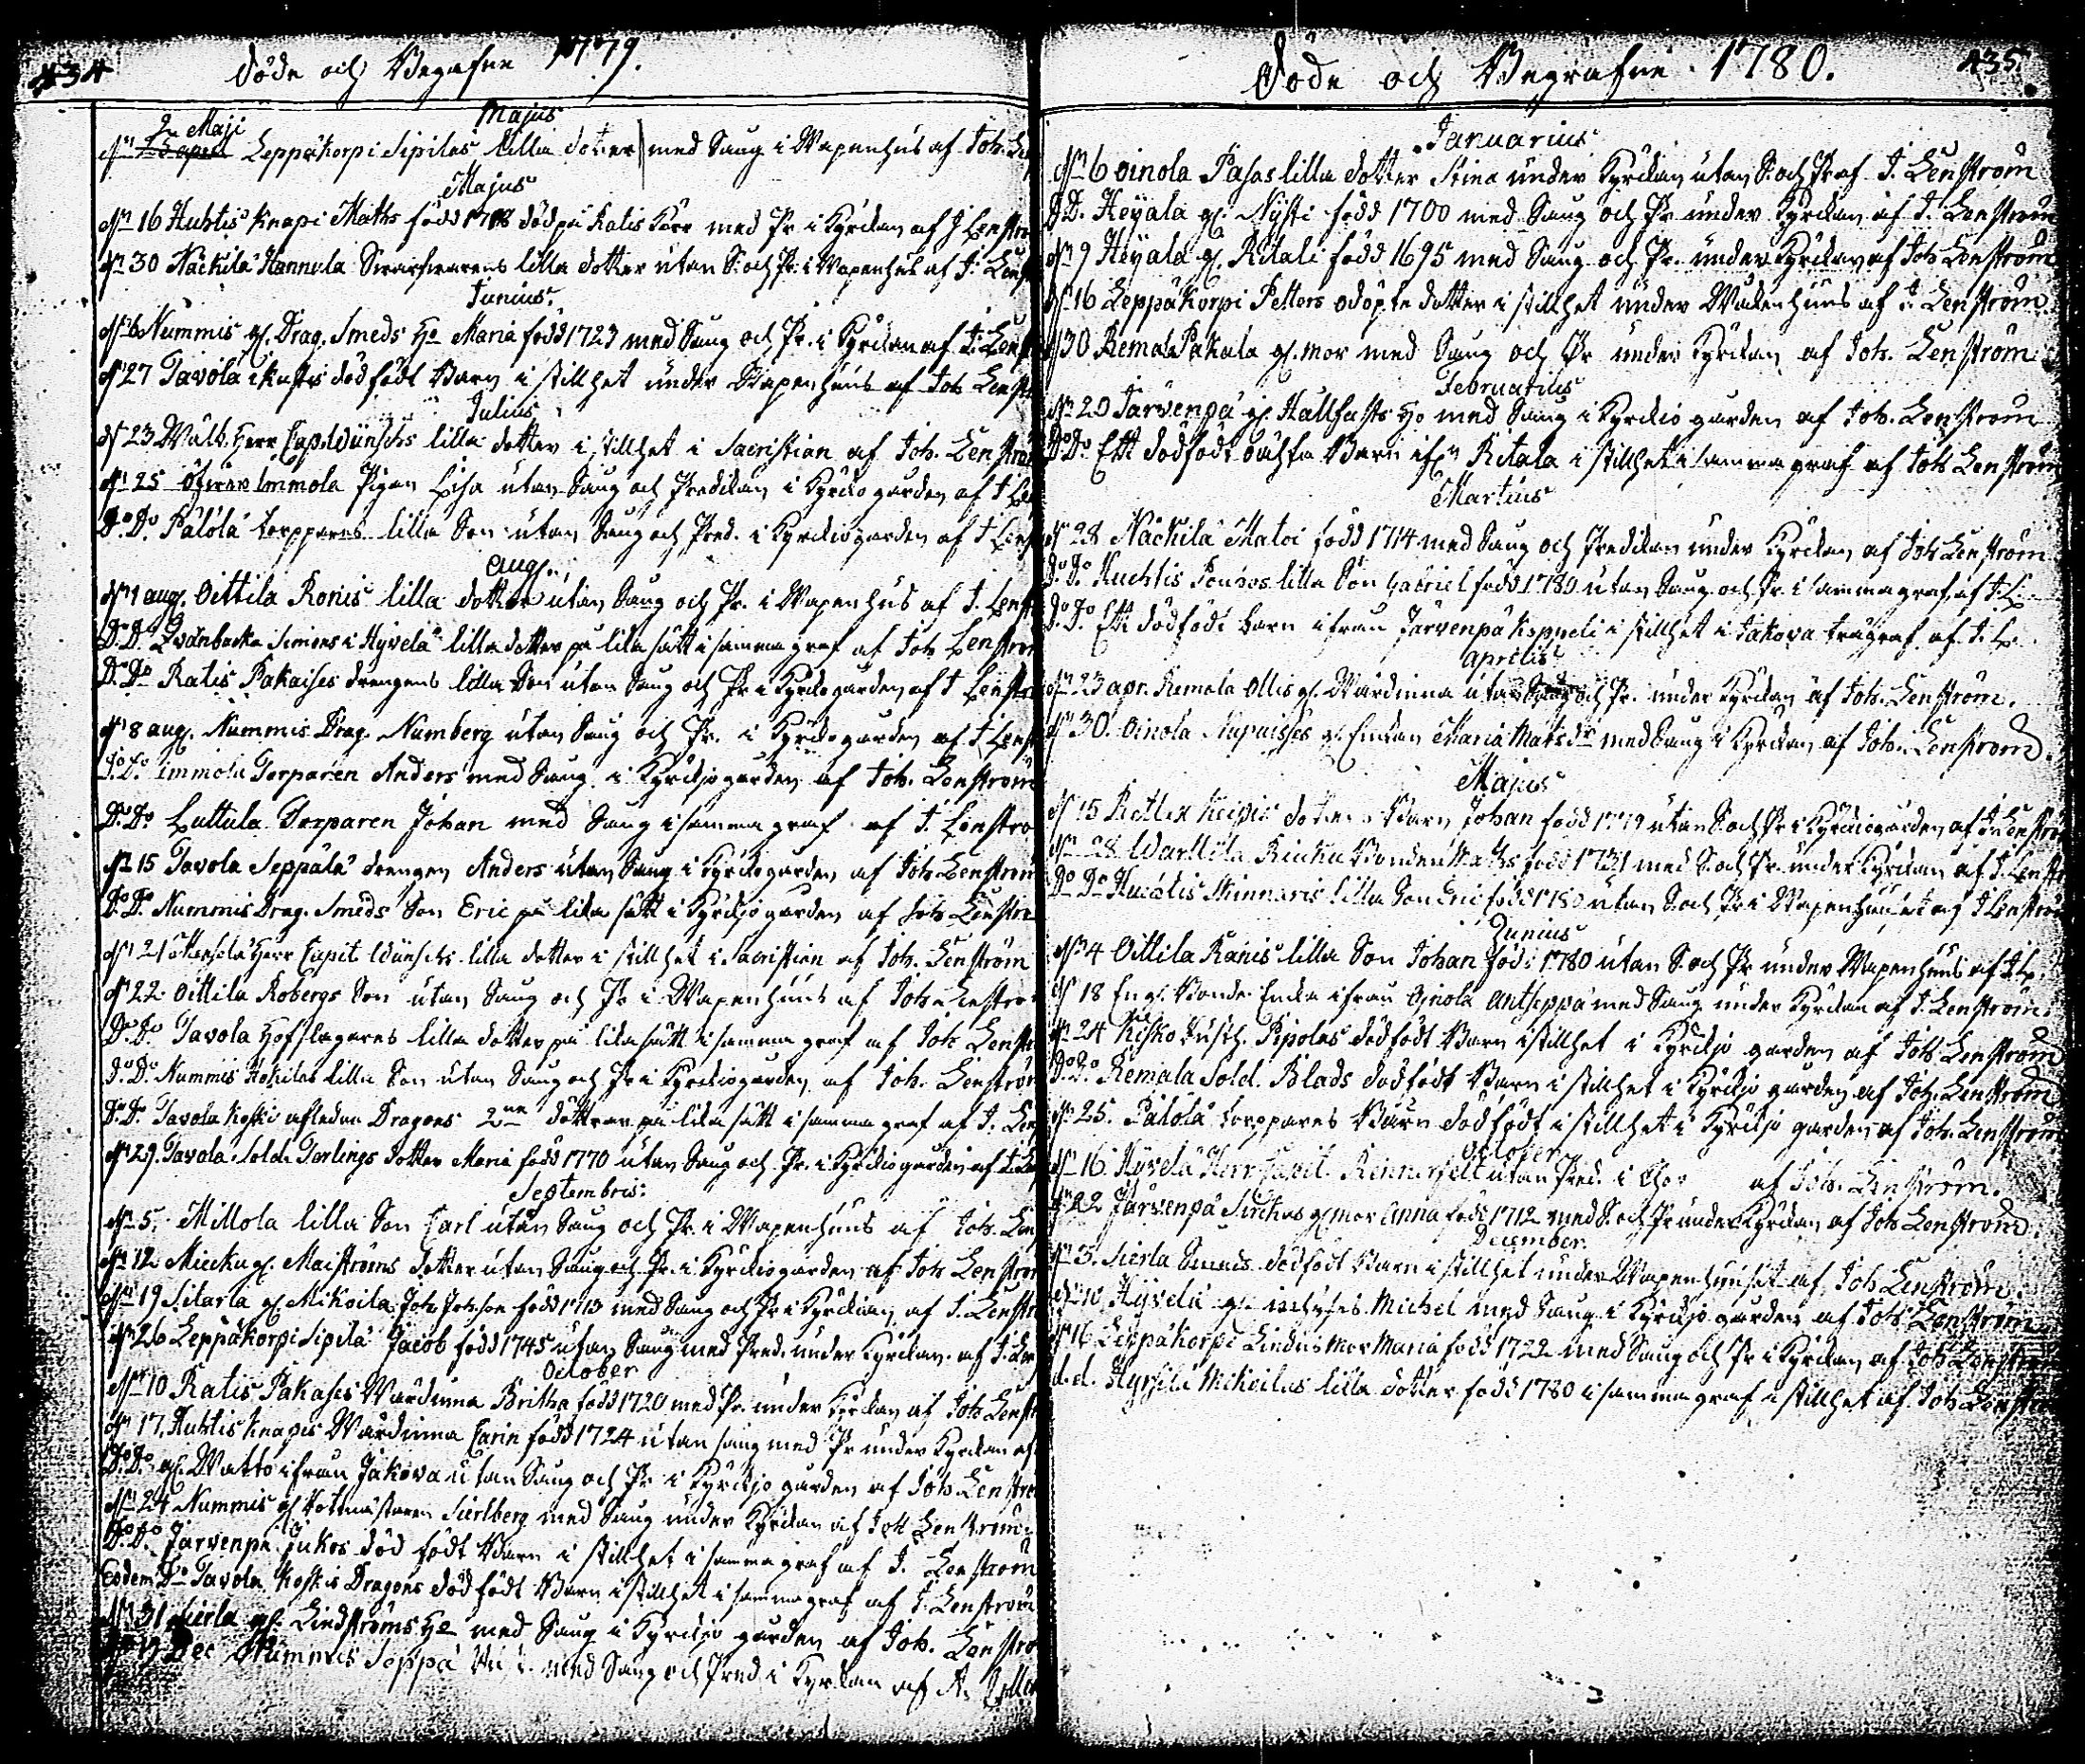 434
Döde och Begrafne 1779.
Majus
2 Maji
dn Leppäkorpi Sipilas lilla dotter med Saug i Wapenhus af Joh.
Majus
dn 16 Huhtis Knapi Maths född död på Ratis Kärr med Pr. i Kyrckan af J Lenstro
dn 30 Näckilä Hannula lilla dotter utan S. och Pr. i Wapenhus af J. Lenst
Junius.
dn 6 Nummis gl. Drag. Smeds Ho Maria född 1723 med Saug och Pr. i Kyrckan af J. Lenst
dn 27 Tavola dödfödt Barn i stillhet under Wapenhuus af Joh Lenst
Julius
dn 23 Herr Cap. Wünschs lilla dotter i stillhet i Sacristian af Joh. Lenstro
dn 25 Immola Pigan Lisa utan Saug och Predickan i Kyrckogården af J Le
Do Do Pälölä torppares lilla Son utan Saug och Pred. i Kyrckiogården af J Lenst
Aug.
dn 1 aug. Oittila Ronis lilla dotter utan Saug och Pr. i Wapenhus af J. Lenst
Do Do Simons i Hyvelä lilla dotter på lika sätt i samma graf af Joh Lenstrom
Do Do Ratis Pakaises drengens lilla Son utan Saug och Pr i Kyrckogården af J Lenstr
dn 8 aug. Nummis Drag. Numberg utan Saug och Pr. i Kyrckogården af J Lenst
Do Do immola Torparen Anders med Saug i Kyrckjogården af Joh. Lenstrom
Do Do Luttula Torparen Johan med Saug i samma graf af J. Lenstro
dn 15 Tavola Seppälä drengen Anders utan Saug i Kyrckogården af Joh Lenstrom
Do Do Nummis Drag. Smeds Son Eric på lika sätt i Kyrckjogården af Joh Lenstro
dn 21 Herr Capit Wünschs lilla dotter i stillhet i Sacristian af Joh. Lenström
dn 22 Oittila Robergs Son utan Saug och Pr i Wapenhuus af Joh Lenstro
Do Do Tavola Hofslagares lilla dotter på lika sätt i samma graf af Joh Lenst
Do Do Nummis lilla Son utan Saug och Pr i Kyrckiogården af Joh. Lenstrom
Do Do Tavola Koski afledne Dragons 2ne döttrar på lika sätt i samma graf af J. Len
dn 29. Tavola Sold. Tarlings dotter Maria född 1770 utan Saug och Pr. i Kyrckiogården af J. Le
Septembris:
dn 5. Millola lilla Son Carl utan Saug och Pr. i Wapenhuus af Joh. Len
dn 12 gl. Maiströms dotter utan Saug och Pr. i Kyrckiogården af Joh Lenstrom
dn 19 gl. Mikoila Joh. Johsson född med Saug och Pr i Kyrckian af J. Lenstr
dn 26 Leppäkorpi Sipilä Jacob född 1745 utan Saug med Pred. under Kyrckan af J. Len
October
dn 10 Ratis Pakases Wärdinna Britha född 1720 med Pr. under Kyrckan af Joh Lenst
dn 17. Huhtis Knapis Wärdinna Carin född 1724 utan saug med Pr under Kyrckan af
Do Do gl. Watto ifrån Jakova utan Saug och Pr i Kyrckjo gården af Joh Lenstro
dn 24 Nummis gl Sierlberg med Saug under Kyrckan af Joh Lenström
Do Do Järvenpä Jukos död födt Barn i stillhet i samma graf af J. Lenstrom
Eodem Do Tavola Koskis Dragons död födt Barn i stillhet i samma graf af J. Lenström
dn 31 Sierla gl. Lindströms Ho med Saug i Kyrckjo gården af Joh. Lenstro
Dec Nummis Seppä med Saug och Pred. i Kyrckan af A.
435.
Döde och Begrafne 1780.
Januarius
dn 6 Oinola Pasas lilla dotter Stina under Kyrckan utan S. och Pr af J. Lenström
D D. Heyala gl. Nysti född 1700 med Saug och Pr under Kyrckan af J. Lenstrom
dn 9 Heyala gl. Ritali född 1695 med Saug och Pr. under Kyrckan af Joh Lenstrom
dn 16 Leppäkorpi Petters odöpte dotter i stillhet under Wapenhuus af J. Lenstrom
dn 30 Remala Pakala gl. mor med Saug och Pr under Kyrckan af Joh. Lenström
Februarius
dn 20 Järvenpä gl. Hallfasts Ho med Saug i Kyrckio gården af Joh. Lenström
Do Do Ett dödfödt Barn ifrn Ritala i stillhet i samma graf af Joh Lenstrom
Martius
dn 28 Näckilä Matoi född 1714 med Saug och Predickan under Kyrckan af Joh Lenström
Do Do Huchtis lilla Son Gabriel född 1780 utan Saug och Pr i samma graf af J. L
Do Do Ett dödfödt barn ifrån Järvenpä Koppeli i stillhet i Jakova graf af J. L.
Aprilis
dn 23 apr. Remala Ollis gl. Wärdinna utan Saug och Pr. under Kyrckan af Joh. Lenström.
dn 30. Oinola Nupuisses gl. Enckan Maria Matsdr med Saug i Kyrckan af Joh. Lenström.
Majus
dn 15 Barn Johan född 1779 utan S. och Pr i Kyrckiogården af J. Lenstro
dn 28 Riuku Bonden född 1731 med S. och Pr. under Kyrckan af J. Lenst
Do Do Huchtis Kinnaris lilla Son Eric född 1780 utan S. och Pr i Wapenhuuset af J Lenstro
Junius
dn 4 Oittila Ranis lilla Son Johan född 1780 utan S. och Pr under Wapenhuus af J L.
dn 18 En gl. Bonde Encka ifrån Ojnola Antseppä med Saug under Kyrckan af J. Lenström.
dn 24 Kisko Pipolas dödfödt Barn i stillhet i Kyrckjo gården af Joh Lenstrom
Do Do Remala Sold. Blads dödfödt Barn i stillhet i Kyrckjo gården af Joh. Lenstrom
dn 25. Pälölä torppares Barn dödfödt i stillhet i Kyrckjo gården af Joh. Lenstrom
October
dn 16. Hyvelä Herr Capit. utan Pred. i Chor af Joh. Lenström.
dn 22 Järvenpä Sirckas gl mor Anna född 1712 med S. och Pr under Kyrckan af Joh Lenström.
December
dn 3. Sierla Smeds dödfödt Barn i stillhet under Wapenhuuset af Joh Lenström.
dn 10 Hyvelä gl. Michel med Saug i Kyrckjo gården af Joh Lenström
dn 16 Leppäkorpi Lindus Mor Maria född 1722 med Saug och Pr i Kyrckan af Joh Lenstrom
d. d. Hyrsilä Mikoilas lilla dotter född 1780 i samma graf i stillhet af Joh Lenstrom